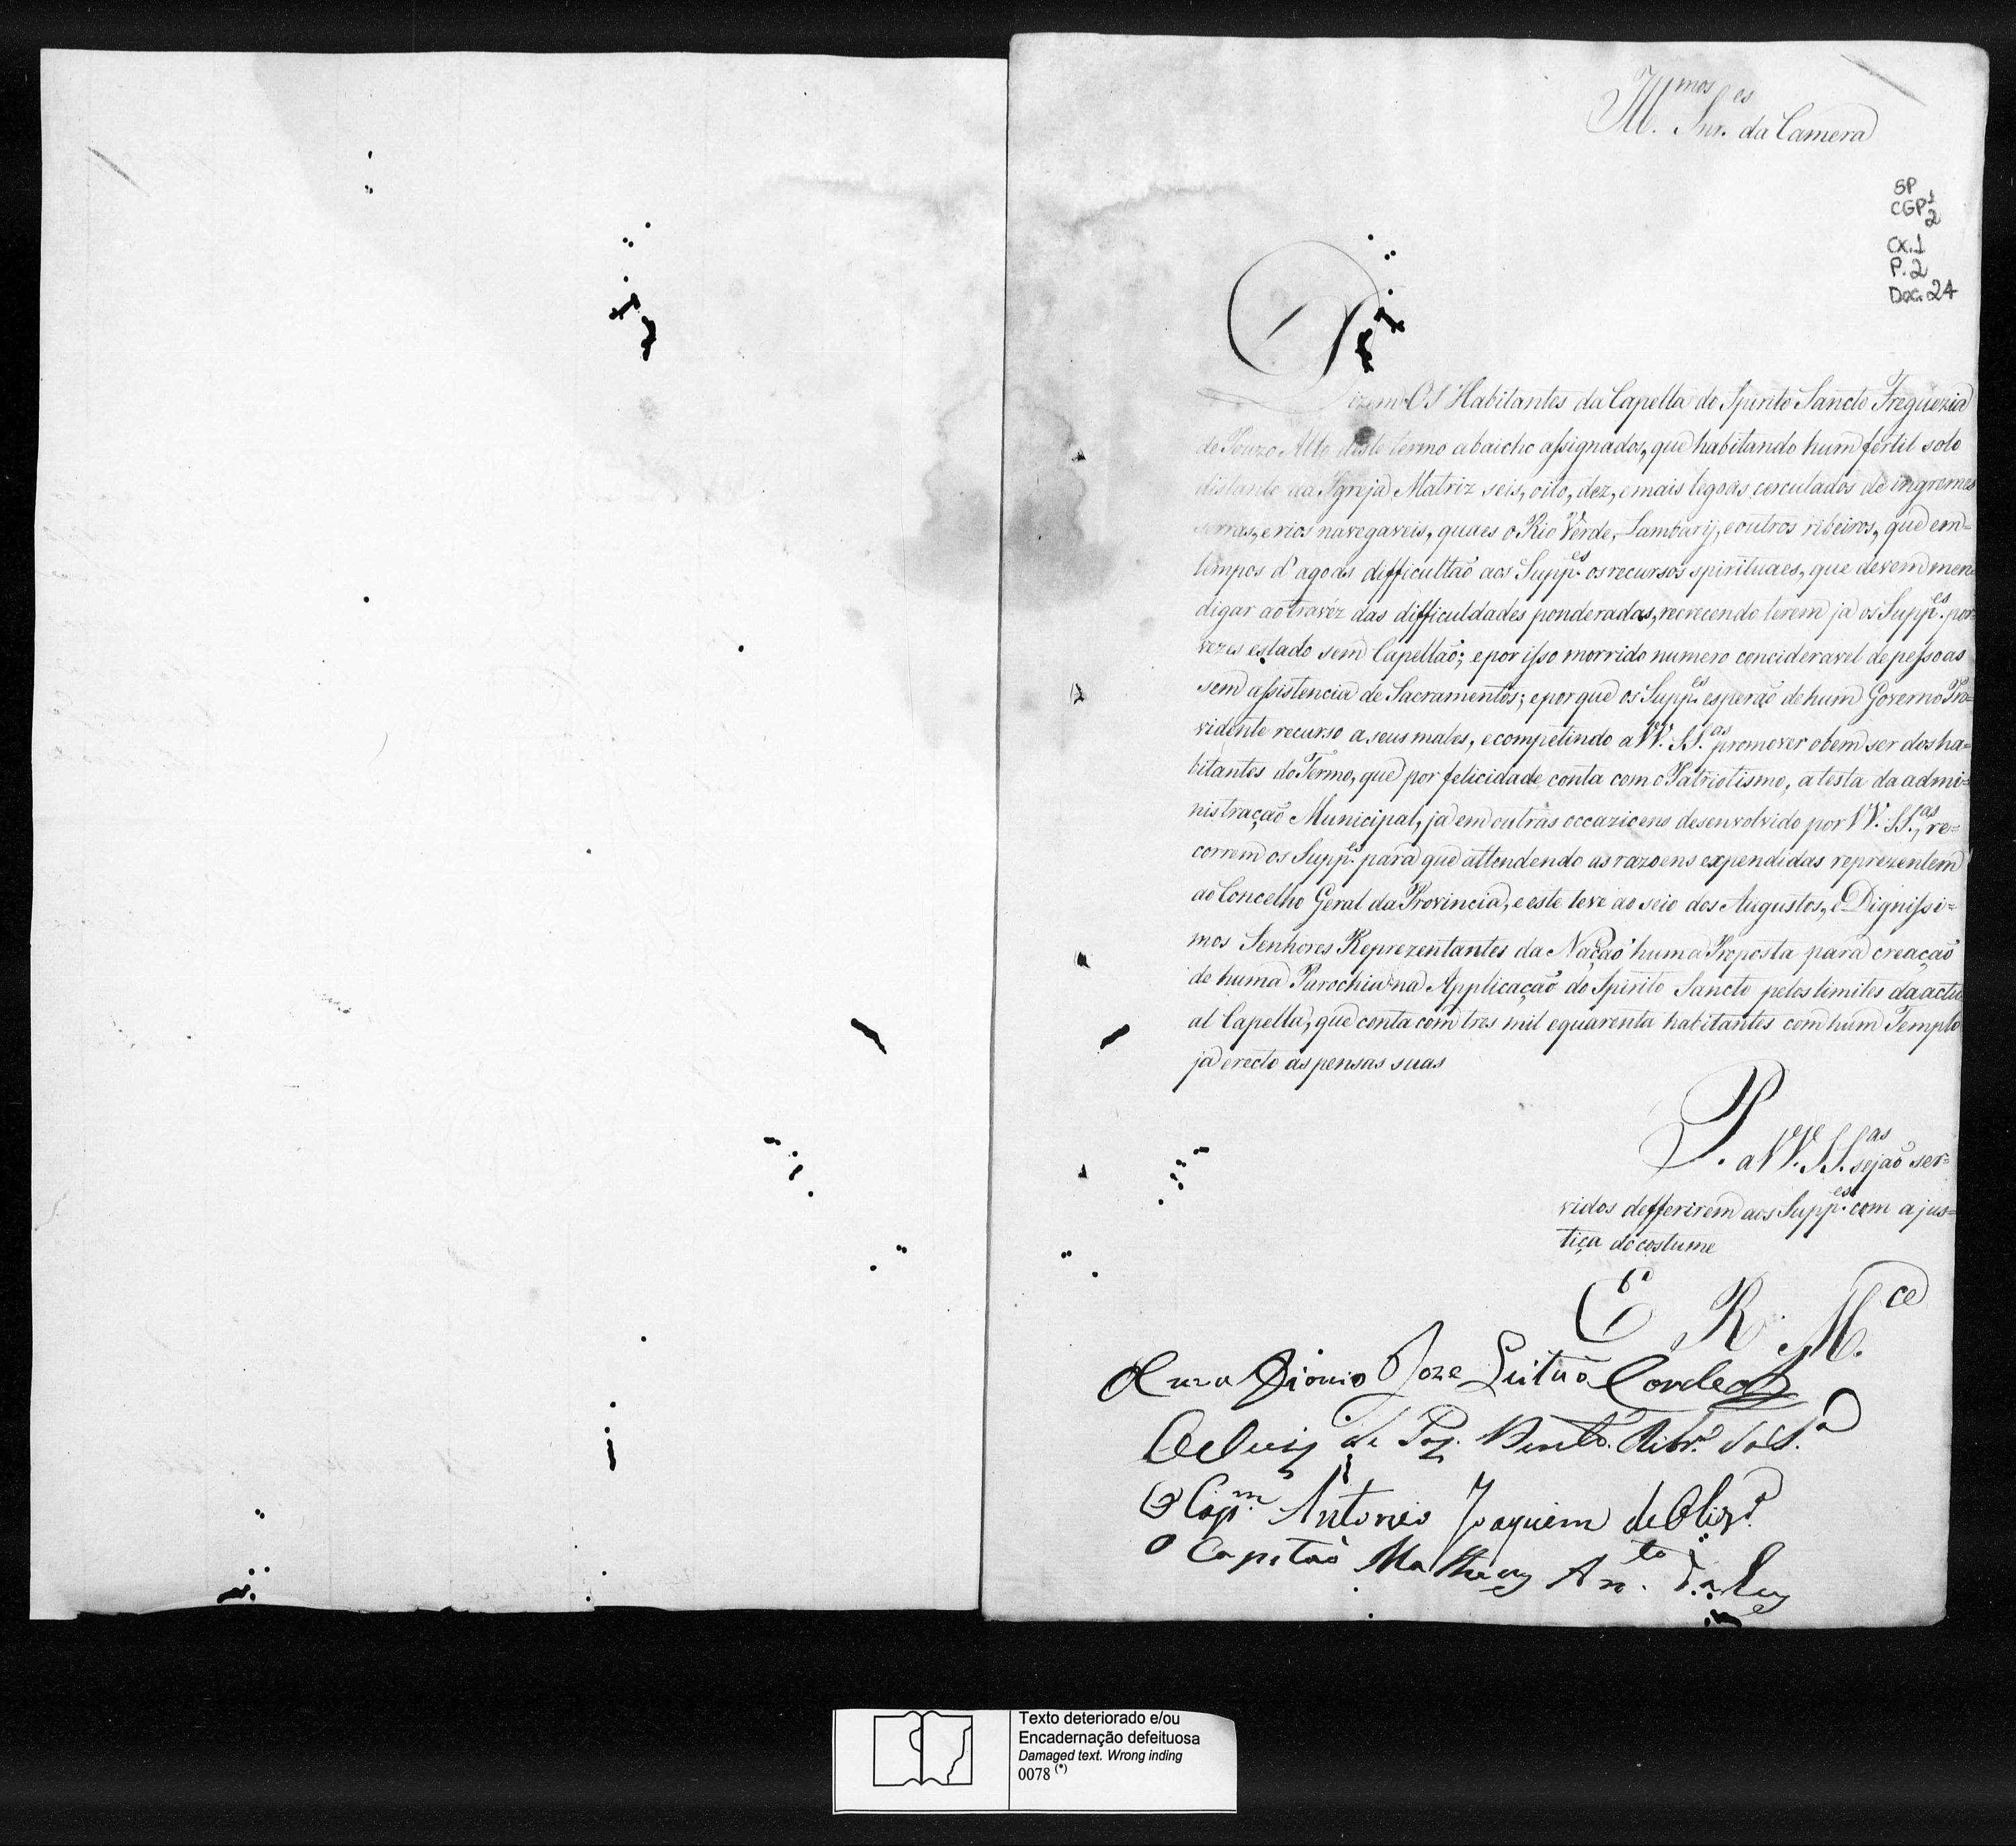 Ill.mos Snr.es da Camera
SP
CGP1
2
Cx.1
P.2
Doc.24
Dizem OS Habitantes da Capella do Spirito Sancto Freguezia
de Pouzo Alto deste termo abaicho assignados, que habitando hum fertil solo
distante da Igreja Matriz seis, oito, dez, e mais legoas cerculados de ingremes
serras, e rios navegaveis, quaes o Rio Verde, Lambary, e outros ribeiros, que em=
tempos d'agoas difficultão aos Supp.es os recursos spirituaes, que devem men=
digar ao travéz das difficuldades ponderadas, recrecendo terem ja os Supp.es por=
vezes estado sem Capellão; e por isso morrido numero concideravel de pessoas
sem assistencia de Sacramentos; e por que os Supp.es esperão de hum Governo Pro=
vidente recurso a seus males, e competindo a VV. SS.as promover o bem ser dos ha=
bitantes do Termo, que por felicidade conta com o Patriotismo, a testa da admi=
nistração Municipal, ja em outras occazioens desenvolvido por VV. SS.as, re=
correm os Supp.es para que attendendo as razoens expendidas reprezentem
ao Concelho Geral da Provincia, e este leve ao seio dos Augustos, e Dignissi=
mos Senhores Reprezentantes da Nação huma Proposta para creação
de huma Parochia na Applicação do Spirito Sancto pelos limites da actu
al Capella, que conta com tres mil e quarenta habitantes com hum Templo
ja erecto as pensas suas
P. a VV. SS.as sejão ser=
vidos defferirem aos Supp.es com a jus=
tiça do costume
E R M.ce
Joze Leitão
de Paz Bento Ribr.o da S.a
O Cap.m Antonio Joaquim de Olivr.a
O Capitão Matheus An.to da Luz
Texto deteriorado e/ou
Encadernação defeituosa
Damaged text. Wrong inding
0078 (*)